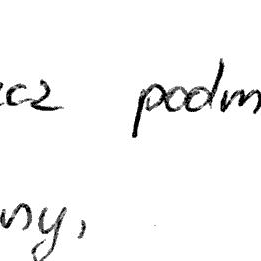 cz podm
ny,